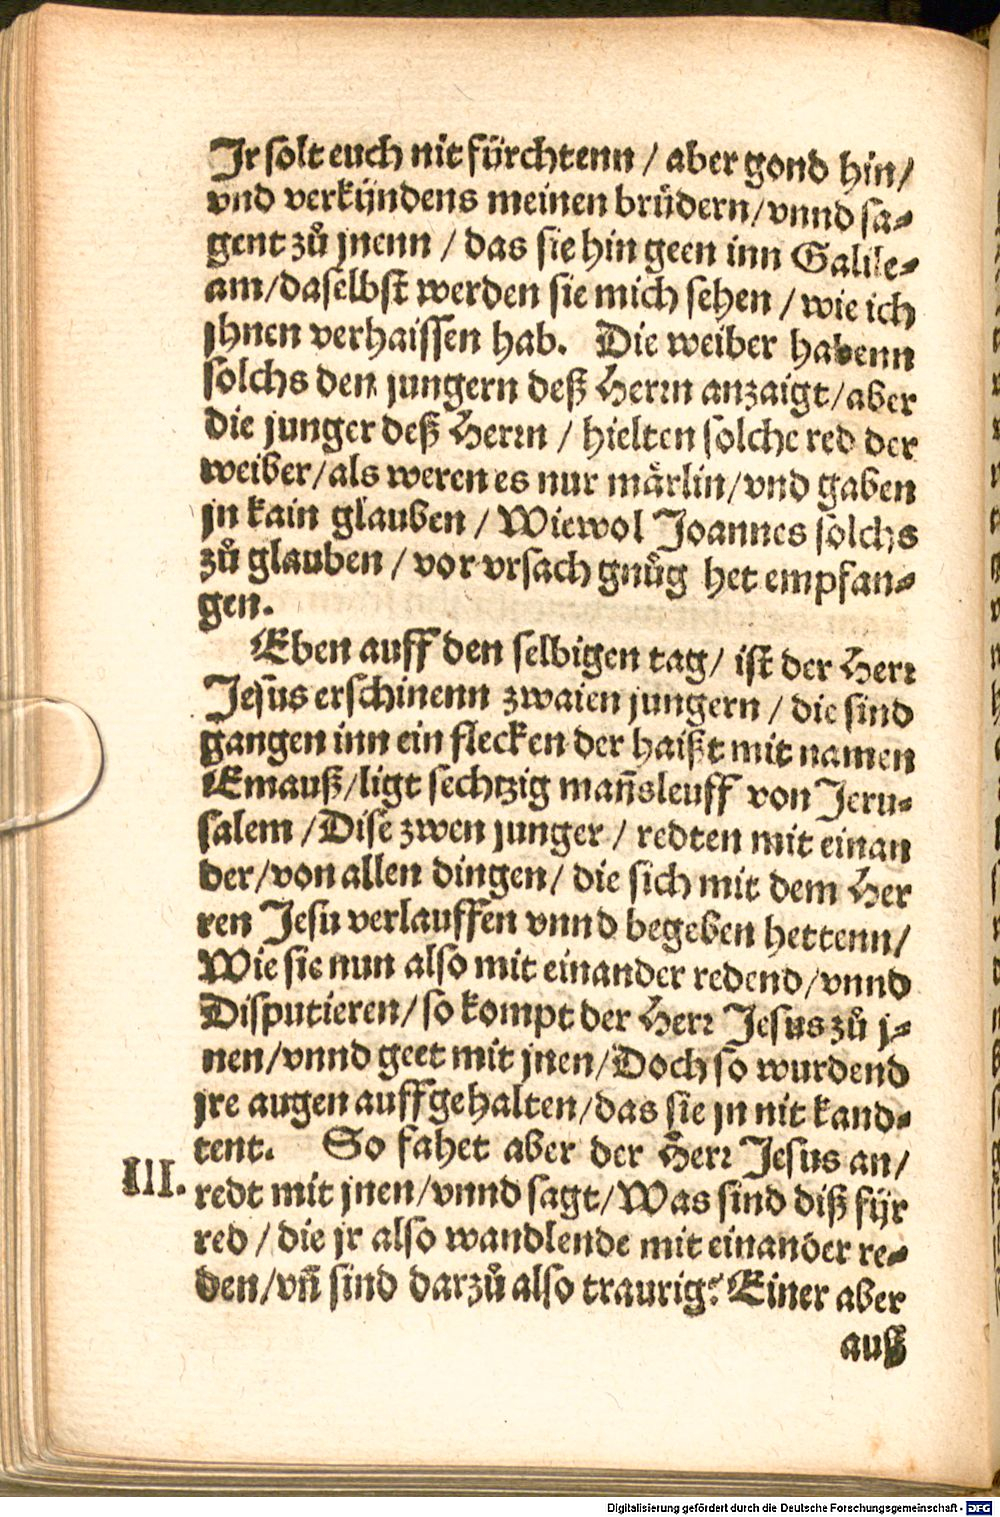 Jr solt euch nit fürchtenn / aber gond hin/
vnd verkündens meinen brüdern/vnnd sa⸗
gent zů jnenn / das sie hin geen inn Galile⸗
am/daselbst werden sie mich sehen / wie ich
jhnen verhaissen hab. Die weiber habenn
solchs den jungern deß Herrn anzaigt/aber
die junger deß Herrn / hielten solche red der
weiber/als weren es nur märlin/vnd gaben
jn kain glauben / Wiewol Joannes solchs
zů glauben / vor vrsach gnůg het empfan⸗
gen.
Eben auff den selbigen tag/ ist der Herr
Jesus erschinenn zwaien jungern / die sind
gangen inn ein flecken der haißt mit namen
Emauß/ligt sechtzig mañsleuff von Jeru⸗
salem /Dise zwen junger / redten mit einan
der/von allen dingen/ die sich mit dem Her
ren Jesu verlauffen vnnd begeben hettenn/
Wie sie nun also mit einander redend/vnnd
Disputieren/so kompt der Herr Jesus zů j⸗
nen/vnnd geet mit jnen/Doch so wurdend
jre augen auffgehalten/das sie jn nit kand⸗
tent. So fahet aber der Herr Jesus an/
III. redt mit jnen/vnnd sagt/Was sind diß für
red / die jr also wandlende mit einander re⸗
den/vñ sind darzů also traurig? Einer aber
auß
Digitalisierung gefördert durch die Deutsche Forschungsgemeinschaft - DFG